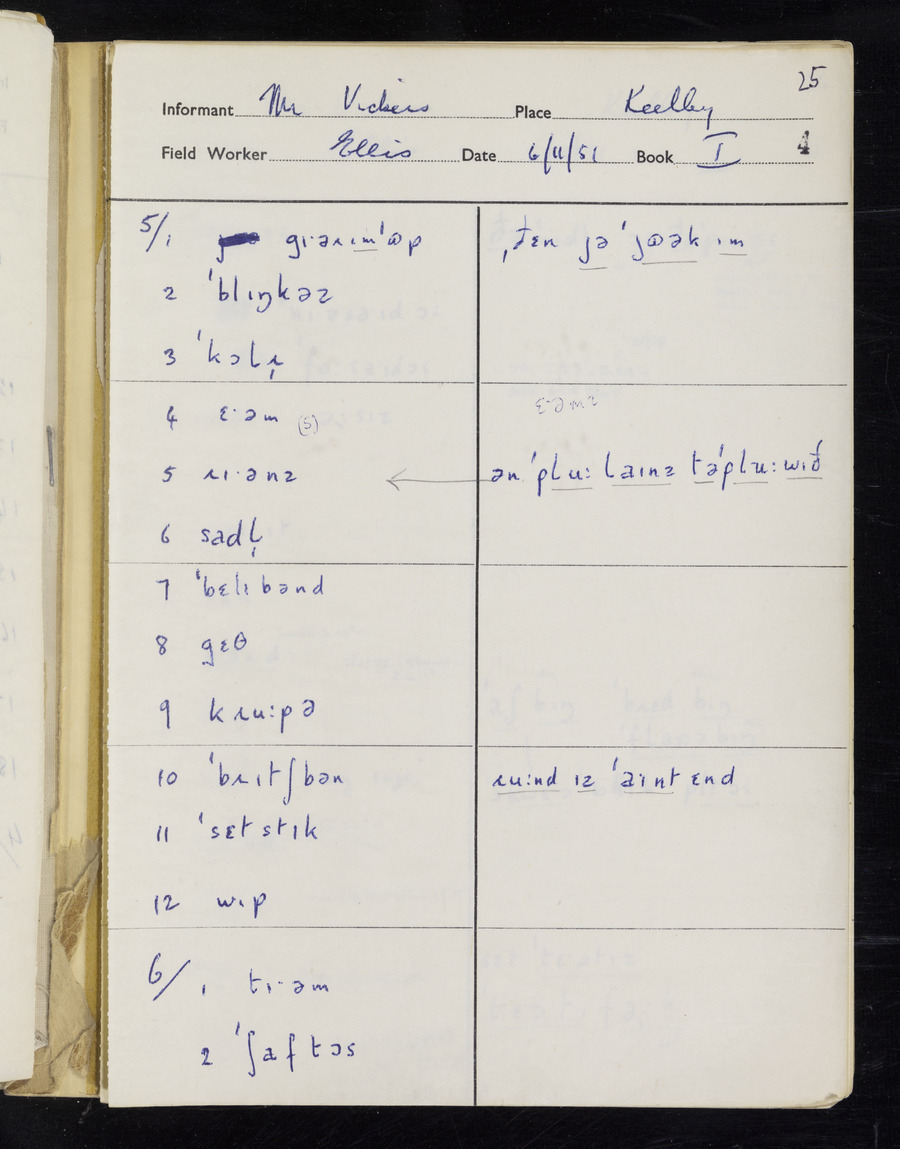 25
Informant Mr Vickers Place Keelby
Field Worker Ellis Date 6/11/51 Book I 4
5/1 gɪ·əɹɪm'ɷp ˌðɛn jə 'jɷəkɪm
2 'blɪŋkəz
3 'kɔlɹ̩
4 ɛ·əm (s) ɛ·əmz
5 ɹɪ·ənz ← ən 'plu: laɪnz tə'plu: wɪð
6 sadl̩
7 'bɛlɪbənd
8 gɛθ
9 kɹu:pə
10 'bɹɪtʃbən ɹu:nd ɪz 'aɪnt ɛnd
11 'sɛtstɪk
12 wɪp
6/1 tɪ·əm
2 'ʃaftəs